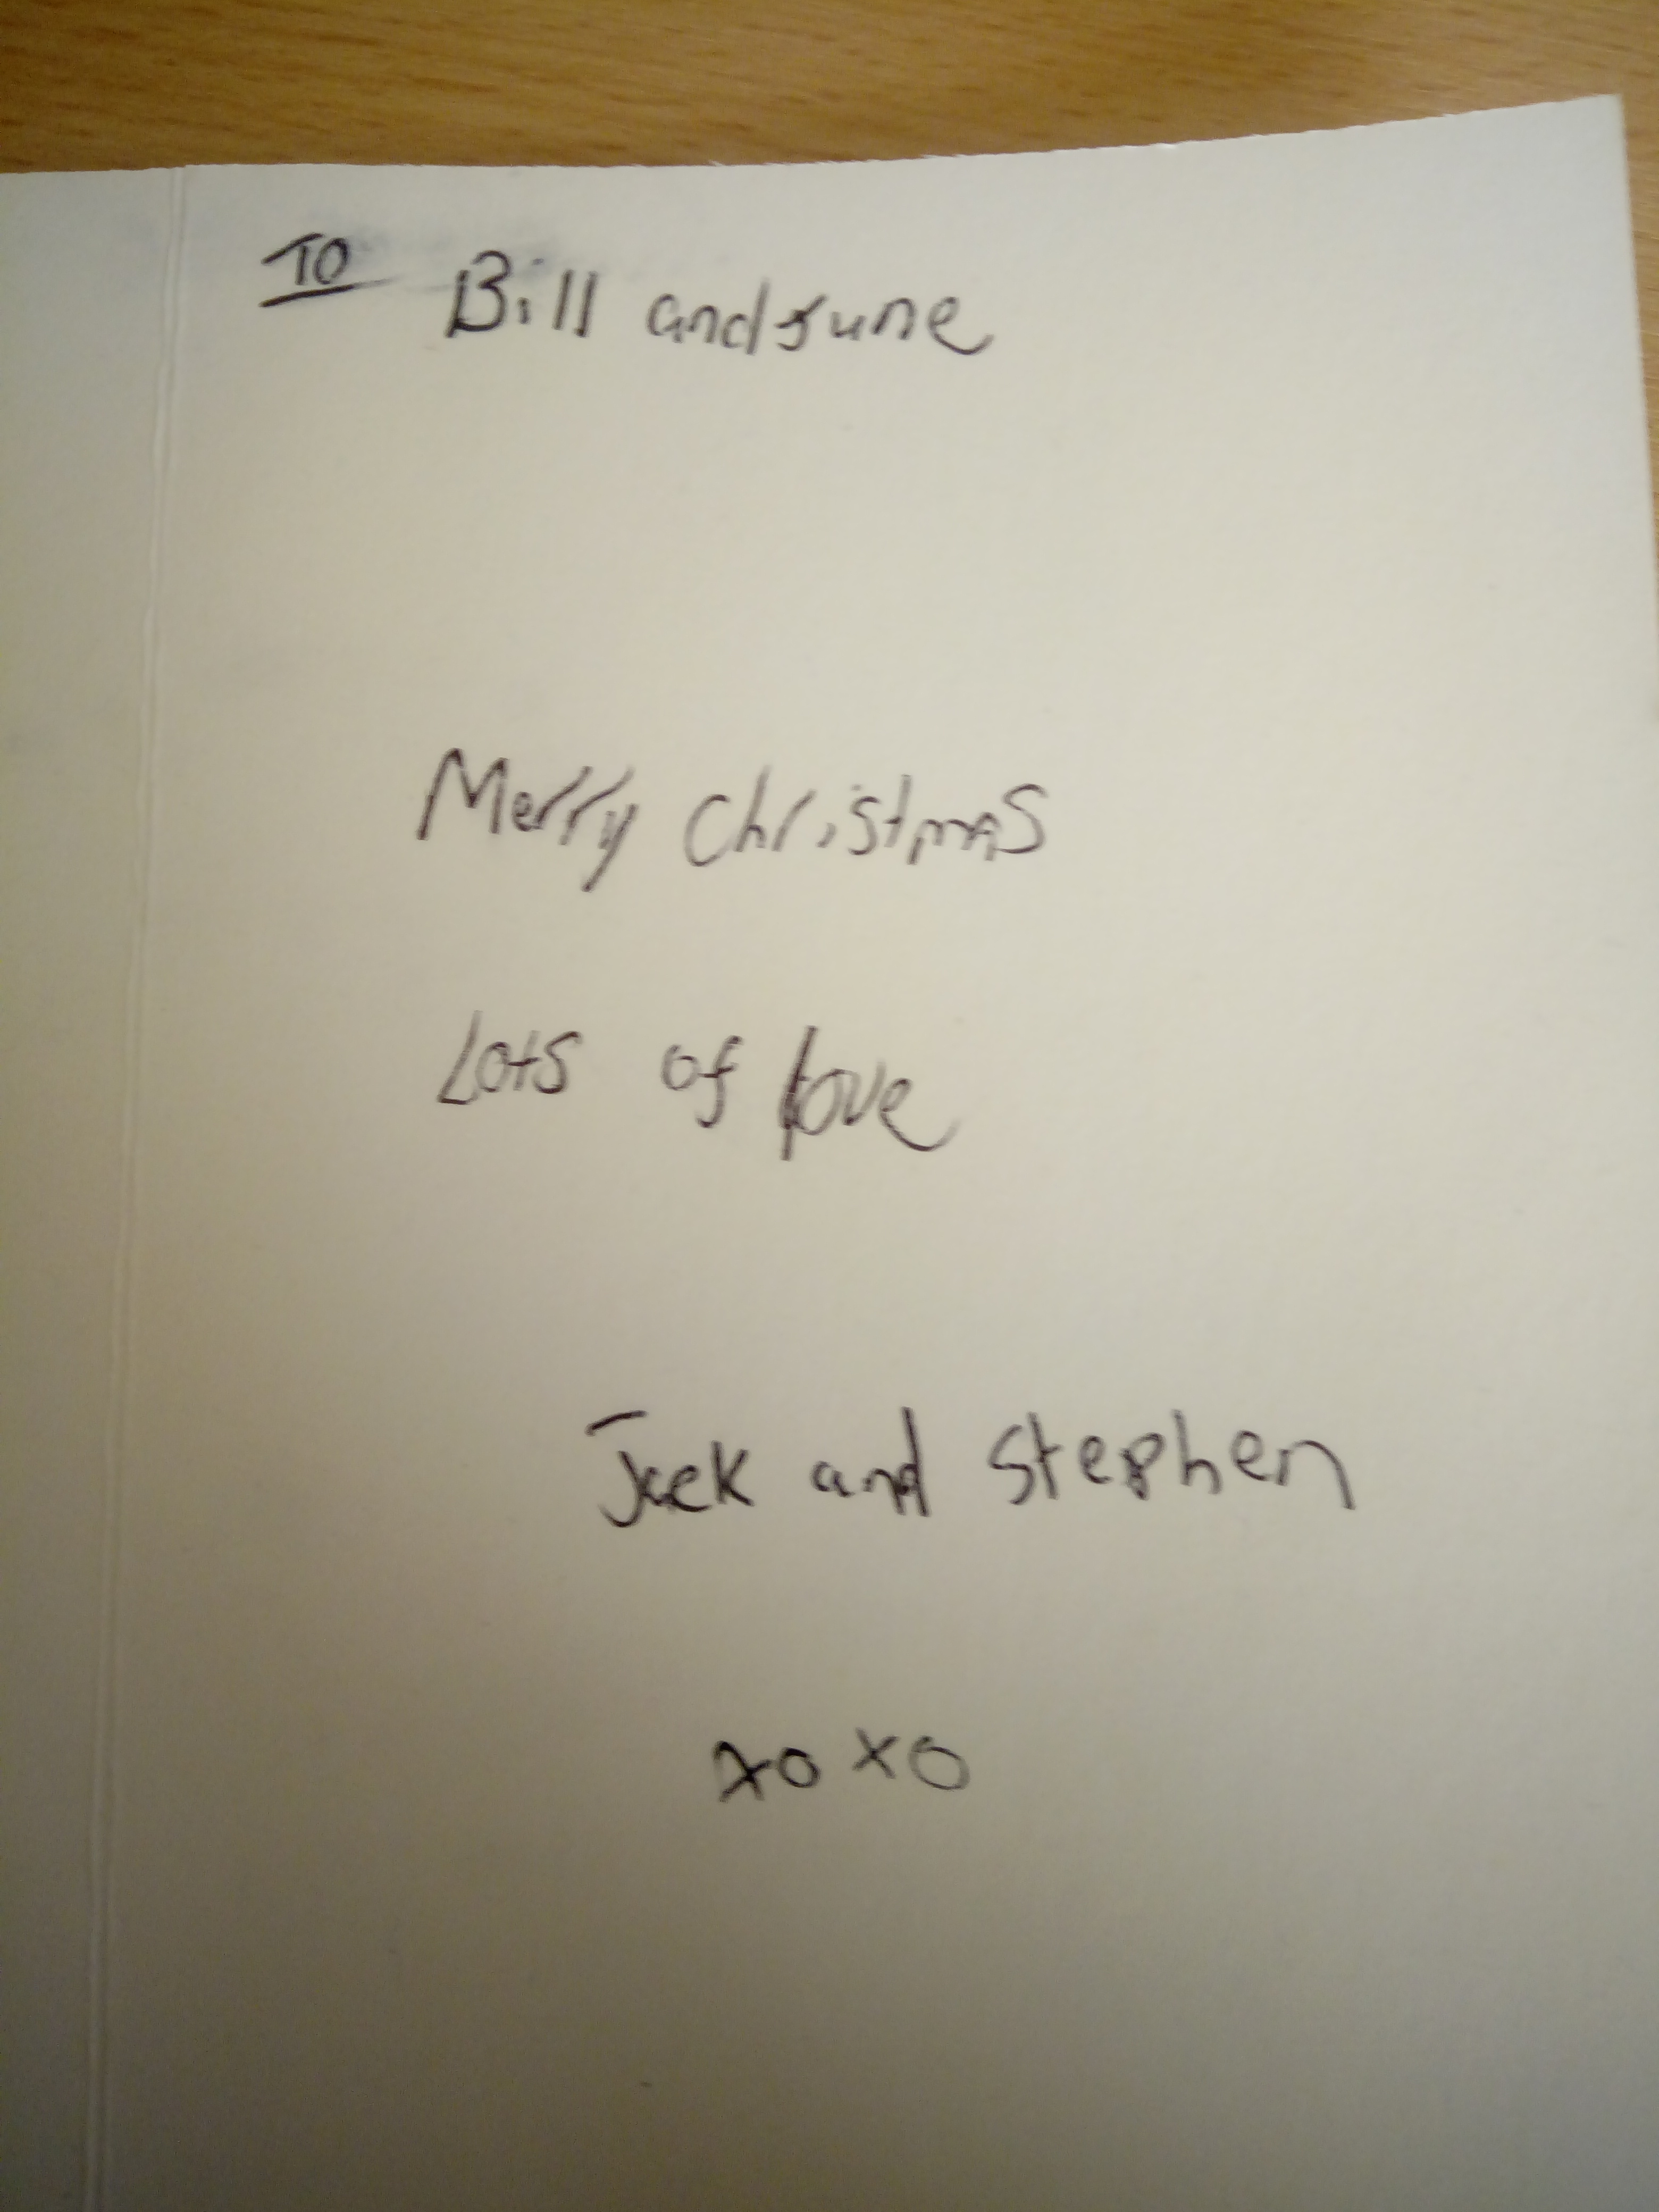 To Bill and June
Merry christmas
Lots of love
Jack and Stephen
xo xo